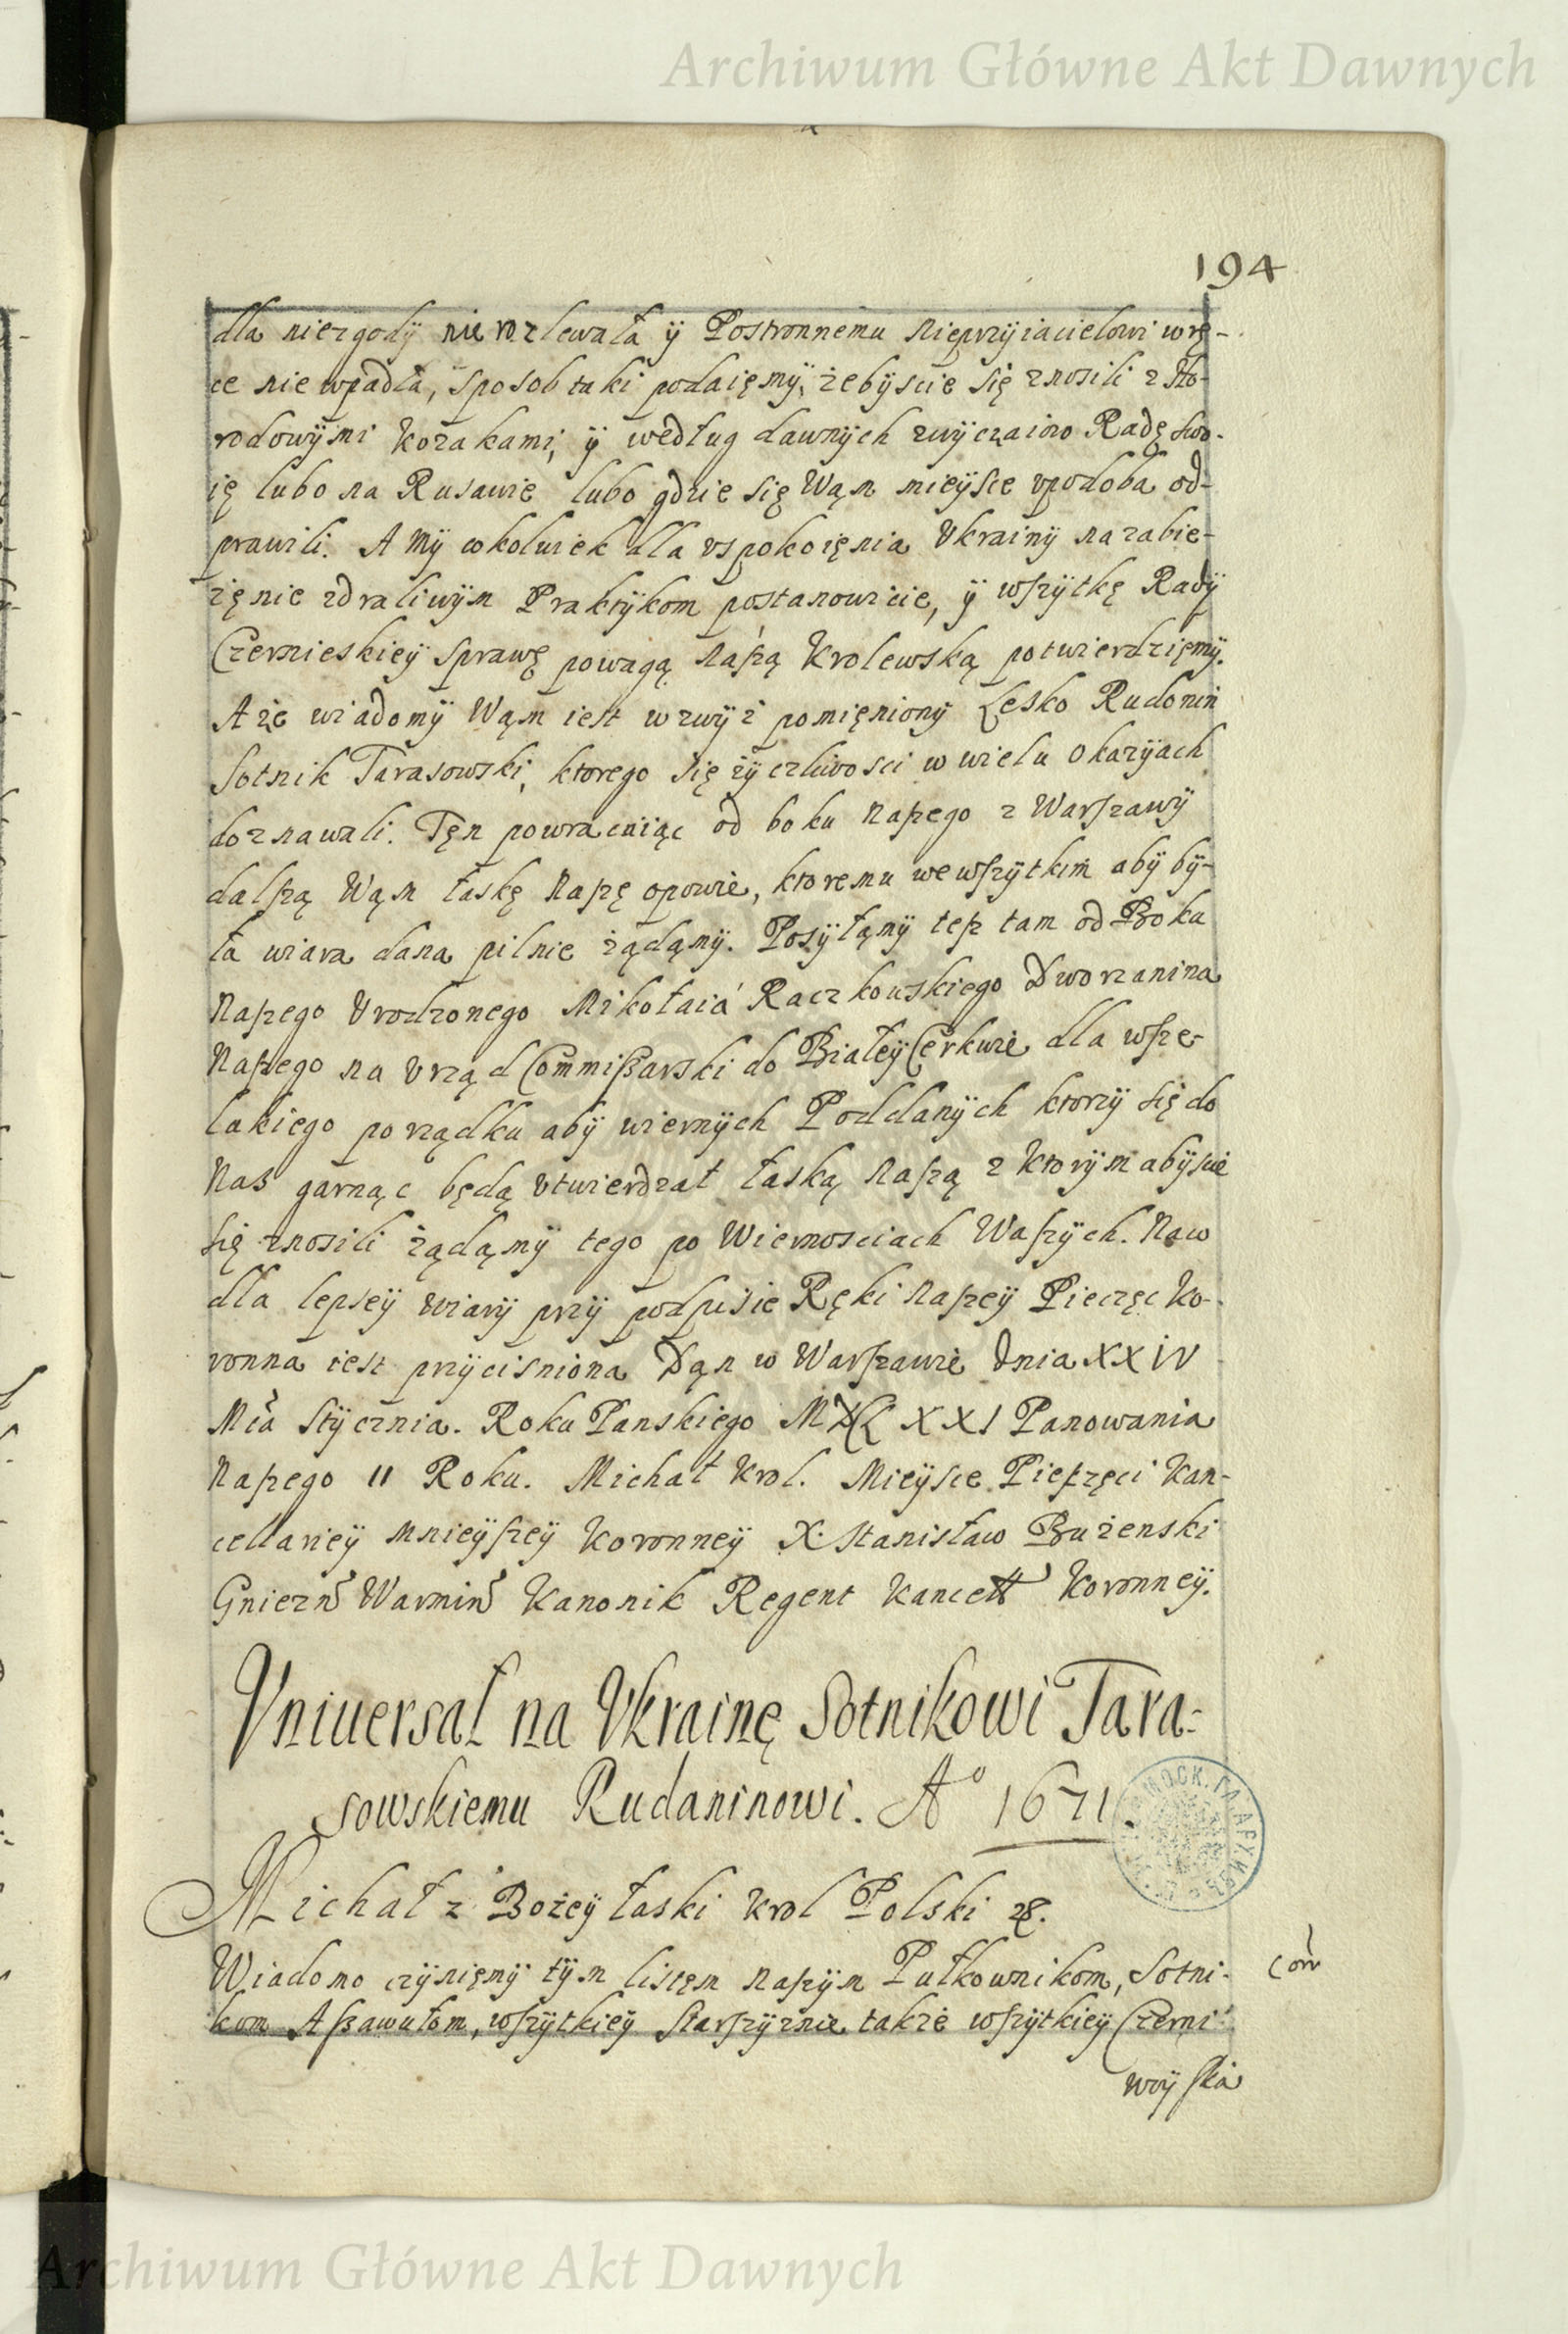 Archiwum Główne Akt Dawnych
194
dla niezgodÿ nie rozlewała ÿ Postronnemu Nieprzÿiacielowi w rę-
ce nie wpadła, sposob taki podaięmÿ, żebÿscie się znosili z Ho-
rodowÿmi Kozakami, ÿ według dawnÿch zwÿczaiow Radę swo-
ię lubo na Rusawie lubo gdzie się Wąm mieÿsce vpodoba od-
prawili. A Mÿ cokolwiek dla vspokoięnia Vkrainÿ na zabie-
zęnie zdraliwÿm Praktÿkom postanowicie, ÿ wszÿtkę Radÿ
Czernieskieÿ sprawę powagą naszą Krolewską potwierdzięmÿ.
A że wiadomÿ Wąm iest wzwÿż pomięnionÿ Lesko Rudonin
Sotnik Tarasowski, ktorego się żÿczliwosci w wielu okazÿach
doznawali. Tęn powracaiąc od boku Naszego z Warszawÿ
dalszą Wąm łaskę Naszę opowie, ktoremu we wszÿtkim abÿ bÿ-
ła wiara dana pilnie żądąmÿ. Posÿłąmÿ tesz tam od Boku
Naszego Vrodzonego Mikołaiá Raczkowskiego Dworzanina
Naszego na Vrząd Commissarski do Białeÿ Cerkwie dla wsze-
lakiego porządku abÿ wiernÿch Poddanÿch ktorzÿ się do
Nas garnąc będą vtwierdzał łaską naszą z ktorÿm abÿscie
się znosili żądąmÿ tego po Wiernosciach Waszÿch. Na co
dla lepseÿ wiarÿ przÿ podpisie Ręki Naszeÿ Pieczęc Ko-
ronna iest przÿcisniona Dąn w Warszawie Dnia XXIV
Mca Stÿcznia. Roku Panskiego MDCLXXI Panowania
Naszego II Roku. Michał Krol. Mieÿsce Pieszęci Kan-
cellarieÿ Mnieÿszeÿ Koronneÿ X. Stanisław Bużenski
Gniezn Warmin Kanonik Regent Kancell Koronneÿ.
Vniuersał na Vkrainę Sotnikowi Tara-
sowskiemu Rudaninowi. Aº 1671.
Michał z Bożeÿ łaski Krol Polski &.
Wiadomo czÿnięmÿ tÿm listęm Naszÿm Pułkownikom, Sotni-
kom Assawułom, wszÿtkieÿ Starszÿznie także wszÿtkieÿ Czerni
woÿska
Archiwum Główne Akt Dawnych